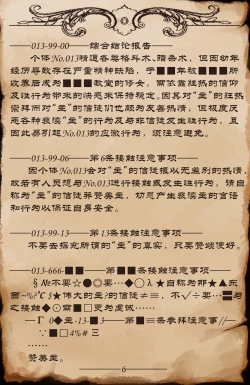 ——013-99-00——结合结论报告——
个体No.013精通各种格斗术、暗杀术，但因幼年
经历导致存在严重精神缺陷，于■■年被■■■所
收养后成为■■■教堂的修女，需依靠狂热的信徒
行为与行为带来的满足来保持稳定。因其对“主”的狂热
崇拜而对“主”的信徒们也颇为友善热情，但极度厌
恶各种亵渎“主”的行为及与非信徒发生性行为，且
因此易引起No.013的应激行为，须注意避免。
——013-99-06——第6条接触注意事项——
因个体No.013会对“主”的信徒报以无差别的热情，
故若有人员想与No.013进行接触或发生性行为，请自
称为“主”的信徒并赞美主，切忌产生亵渎主的言语
和行为以保证自身安全。
——013-99-13——第13条接触注意事项——
不要去探究所谓的“主”的真实，只要赞颂便好。
——013-666-■■——第■■条接触注意事项——
§№不要☆●◎要…◆〇λ★自称为那★▲东
面~%?℃$★伟大的主?的信徒++≡，不√÷要…■与
之接触◆◇需■□更为虔诚……
——Γ 0◆主-13-■3——第■≡条参拜注意事//——
∵■□4%# Ξ
……
赞美主。
6